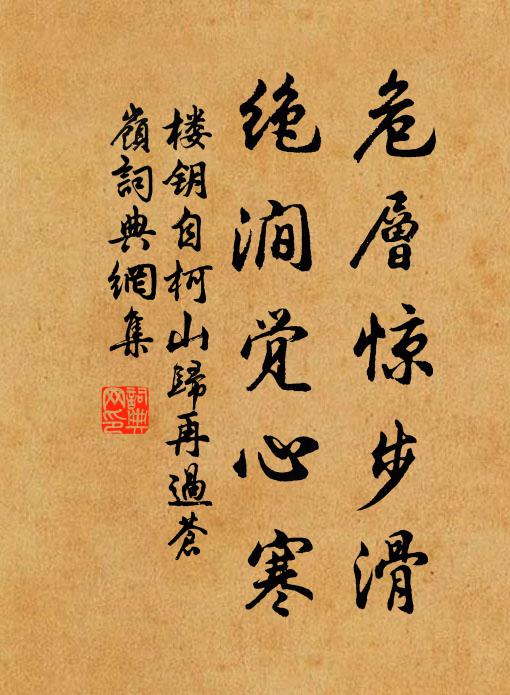 危層惊步滑
绝涧觉心寒
楼钥自柯山歸再過蒼
嶺詞典網集
詞典
网印